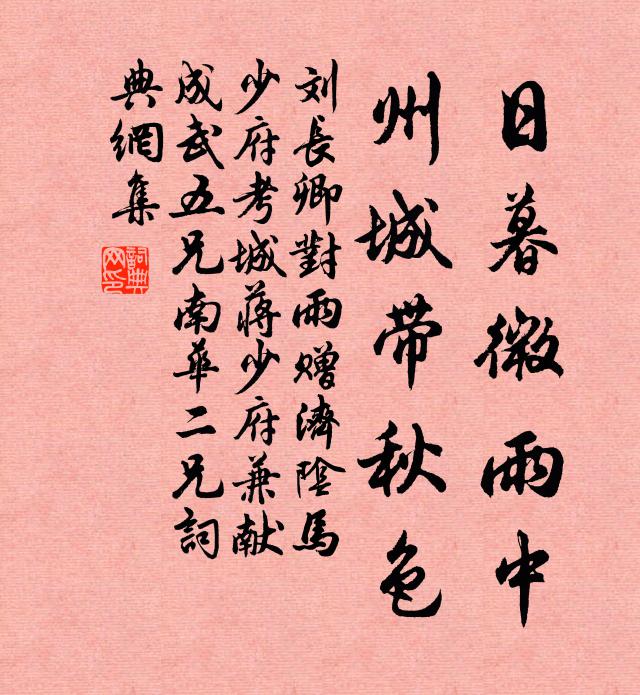 日暮微雨中
州城带秋色
刘長卿對雨赠濟陰馬
少府考城蒋少府兼献
成武五兄南華二兄詞
典網集
詞典
网印